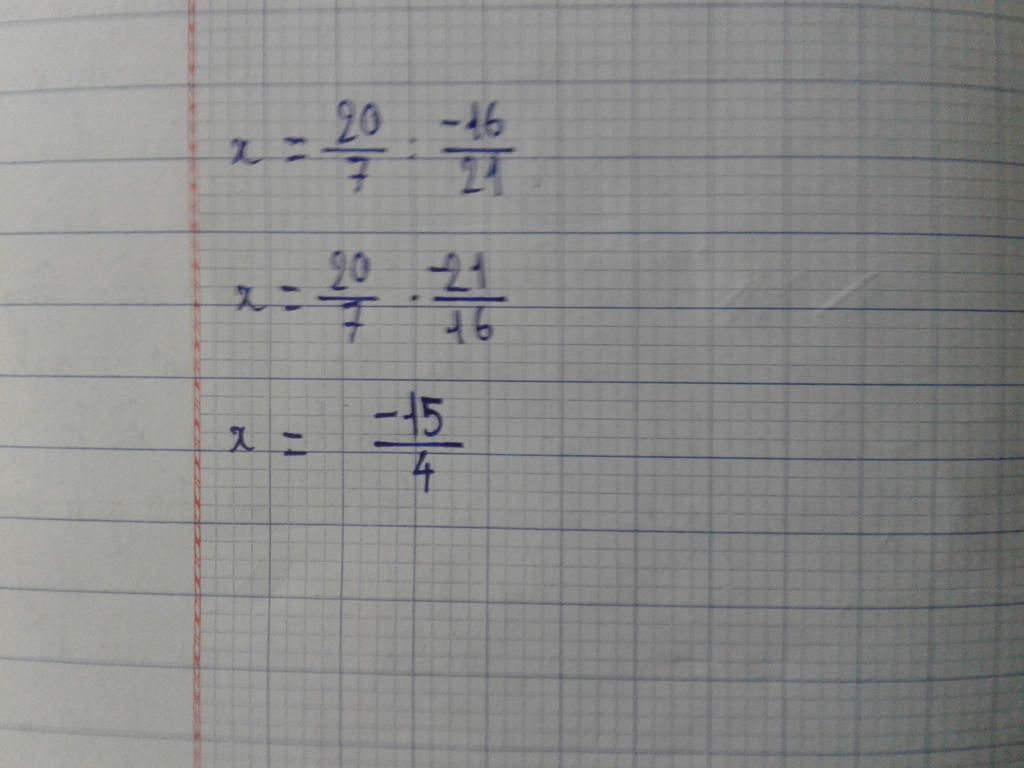 x = 20/7 : -16/21
x = 20/7 . -21/16
x = -15/4